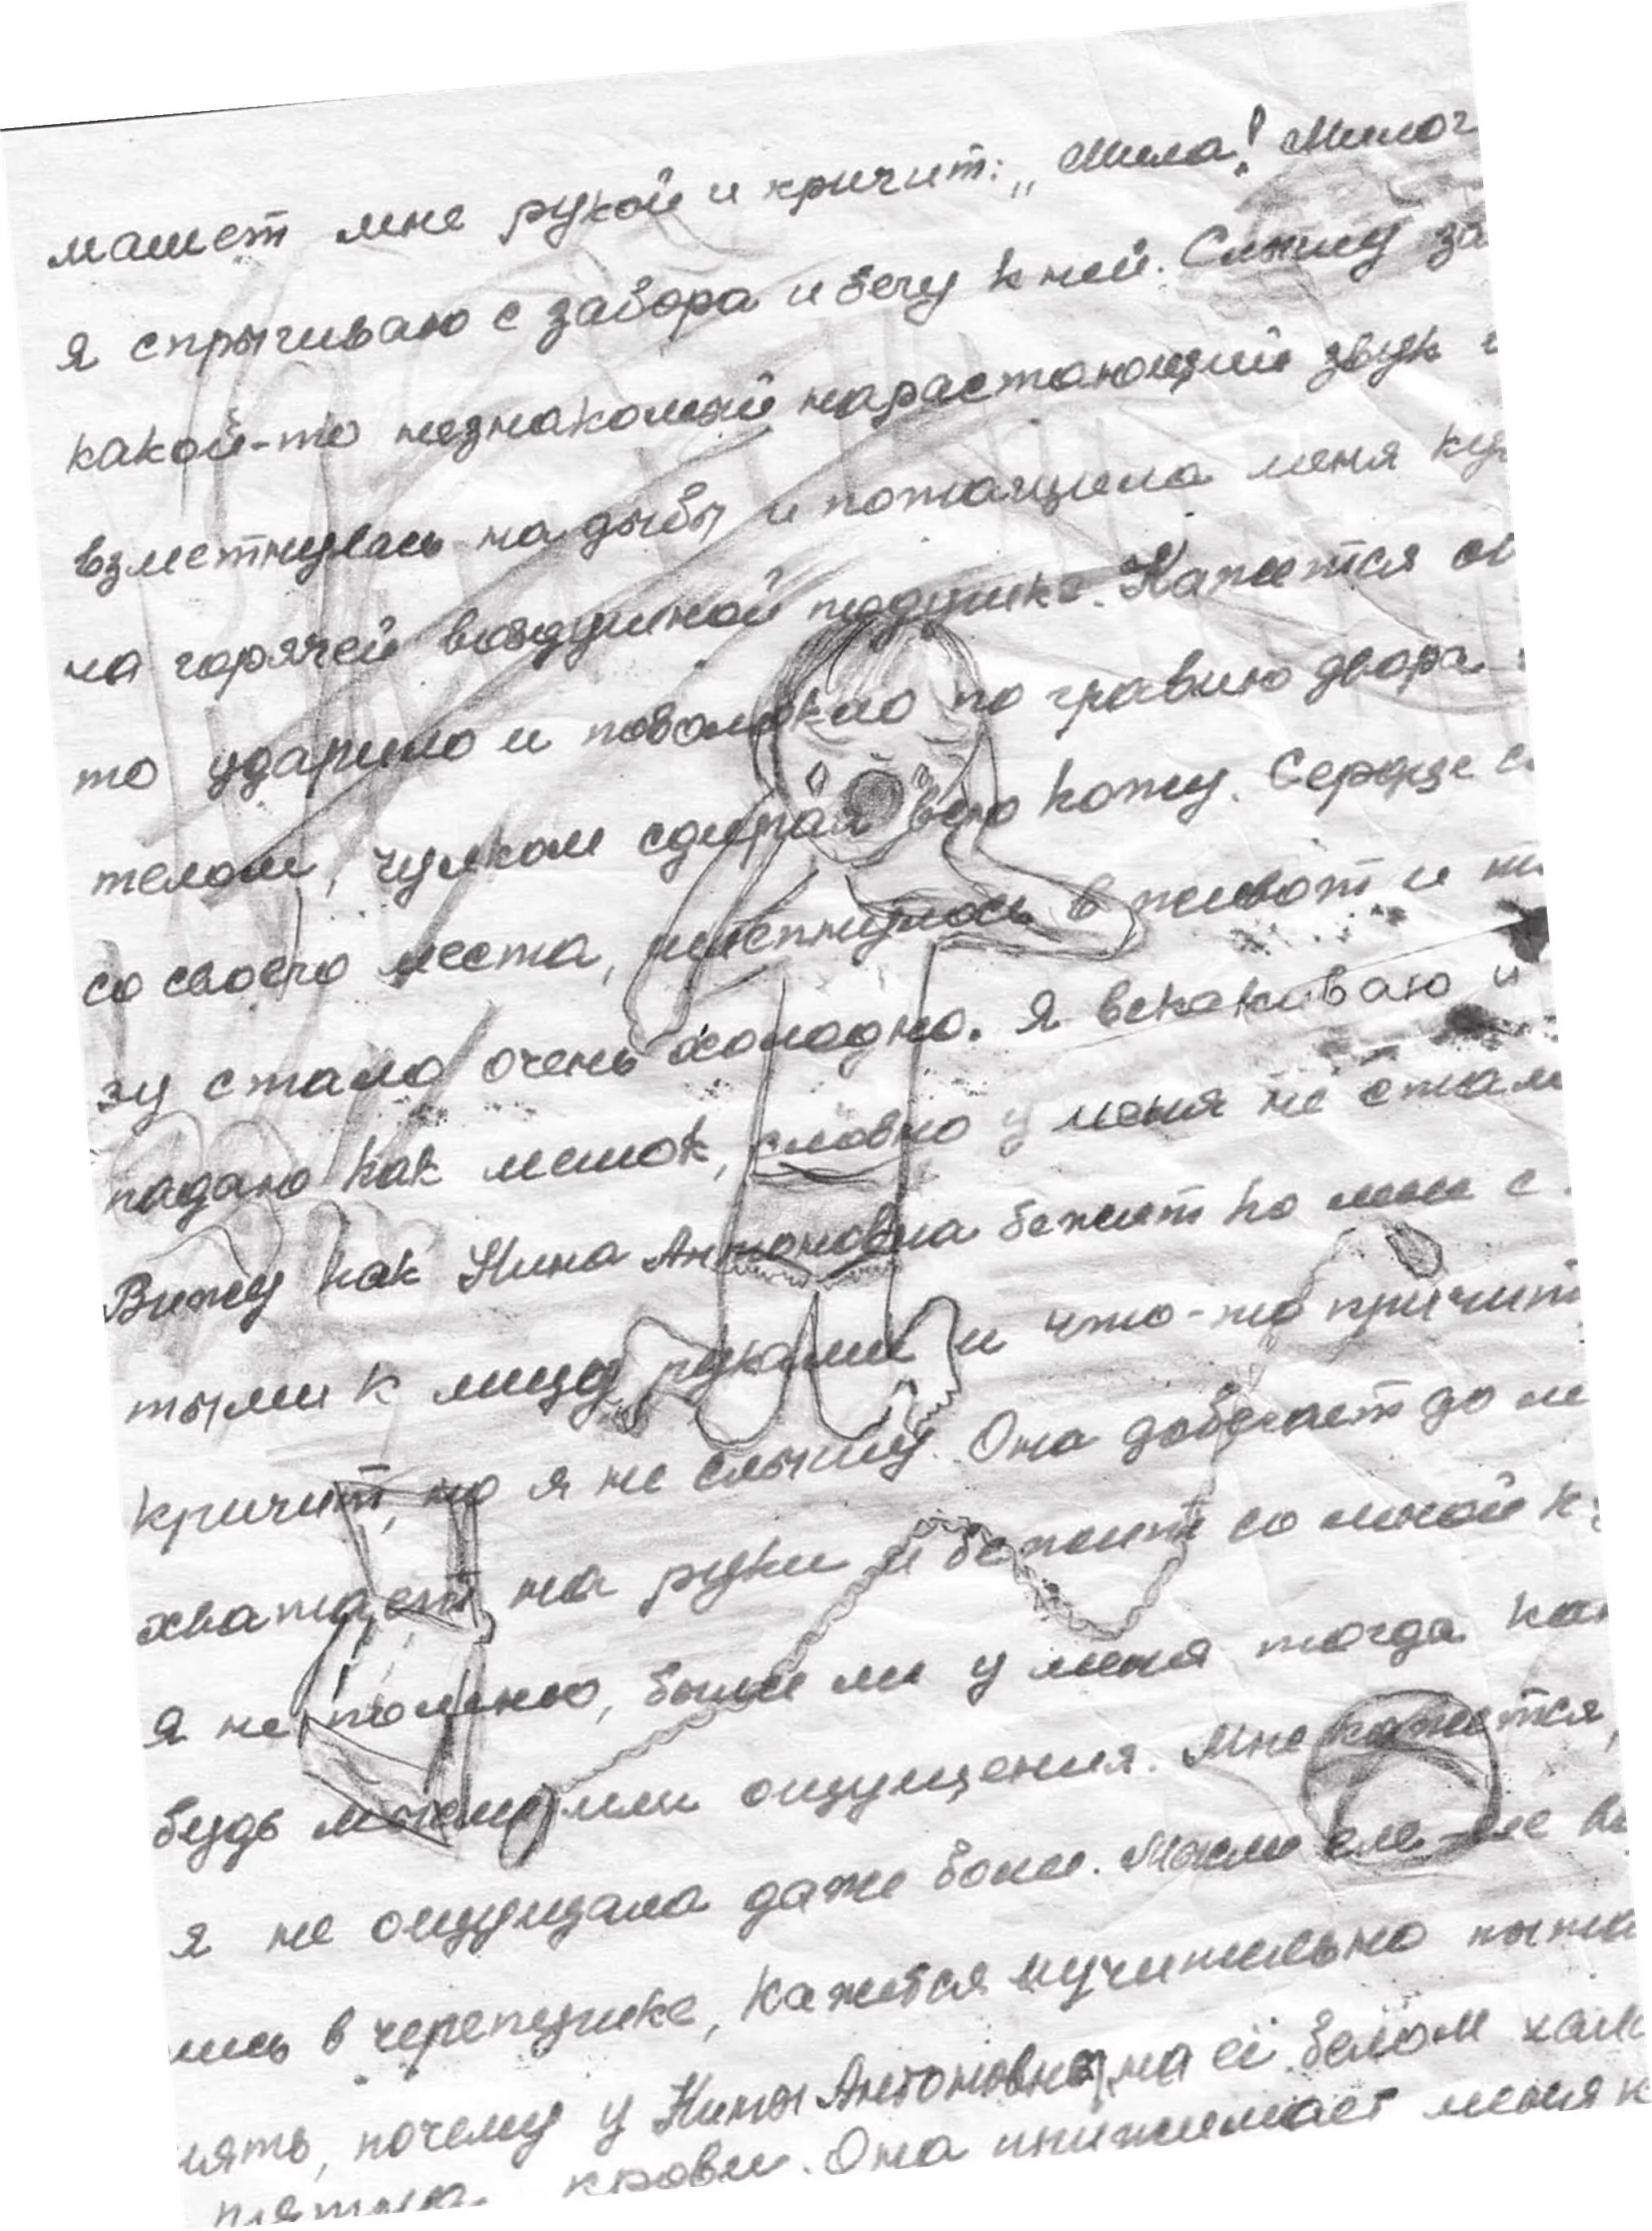 машет мне рукой и кричит: „Мила! Милоч
я спрыгиваю с забора и бегу к ней. Слышу за
какой-то незнакомый нарастающий звук и
взметнулась на дыбы и потащила меня ку
на горячей воздушной подушке. Кажется он
то ударило и поволокло по гравию двора
телом, чулком сдирая всю кожу. Сердце с
со своего места, шлепнулось в живот и
зу стало очень холодно. Я вскакиваю и
падаю как мешок, словно у меня не стал
Вижу как Нина Антоновна бежит ко мне с
тыми к лицу руками и что-то причит
кричит, но я не слышу. Она добегает до м
хватает на руки и бежит со мной к
Я не помню, были ли у меня тогда как
будь мысли или ощущения. Мне кажется,
я не ощущала даже боли. Мысли еле-еле
лись в черепушке, кажется мучительно пыта
нять, почему у Нины Антоновны на её белом хал
пятна крови. Она прижимает меня к